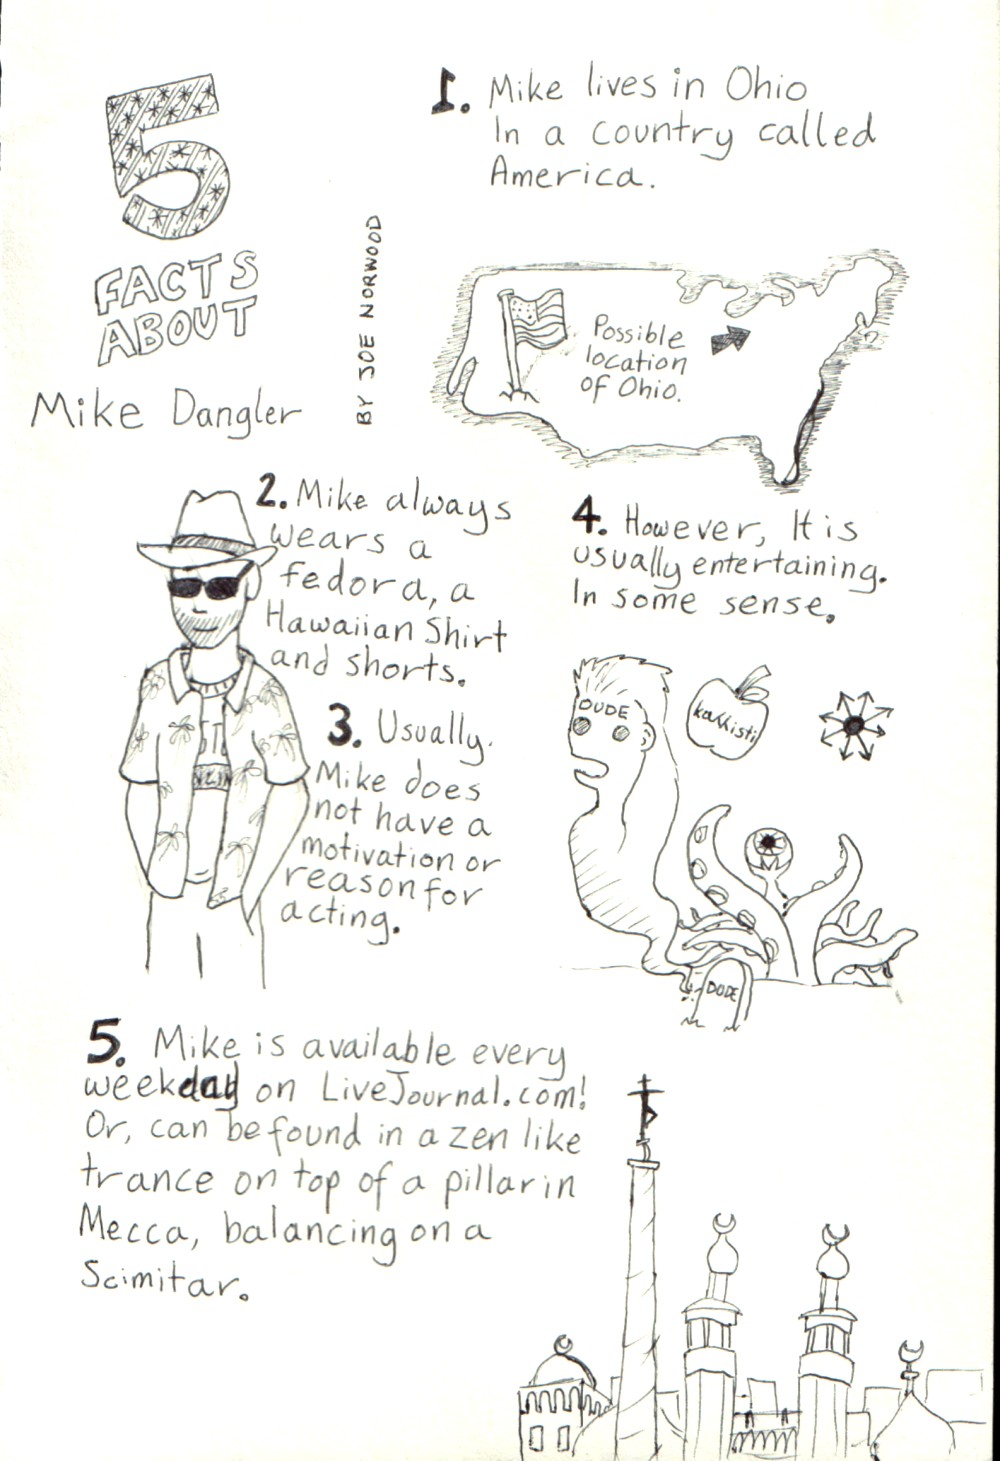 5
FACTS
ABOUT
Mike Dangler
BY JOE NORWOOD
1. Mike lives in Ohio
In a country called
America.
Possible
location
of Ohio.
2. Mike always
wears a
fedora, a
Hawaiian Shirt
and shorts.
3. Usually,
Mike does
not have a
motivation or
reason for
acting.
4. However, It is
usually entertaining.
In some sense.
DUDE
kallisti
DUDE
5. Mike is available every
weekday on LiveJournal.com!
Or, can be found in a zen like
trance on top of a pillar in
Mecca, balancing on a
Scimitar.